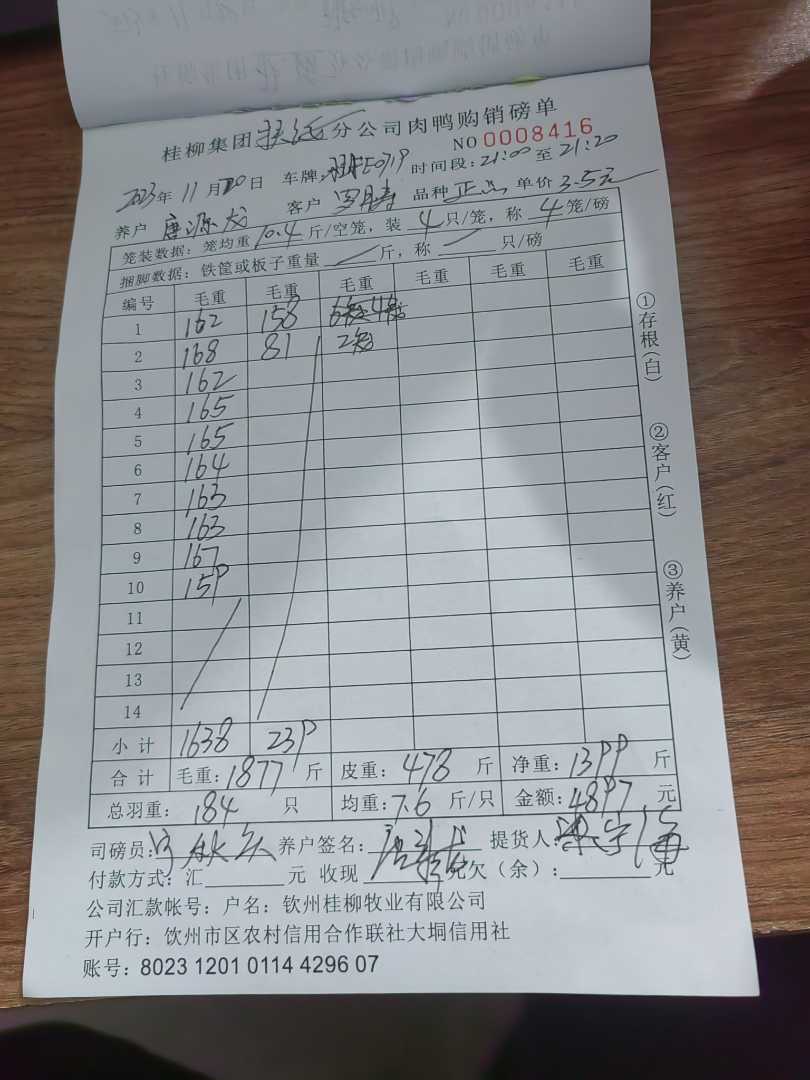 桂柳集团分公司肉鸭购销磅单
NO 0008416
2023年 11月 20日 车牌: 时间段: 21:00 至 21:20
养户 唐源龙 客户 品种 正品 单价 3.5元
笼装数据: 笼均重 10.4 斤/空笼, 装 4 只/笼, 称 4 笼/磅
捆脚数据: 铁筐或板子重量 斤, 称 只/磅
编号 毛重 毛重 毛重 毛重 毛重 毛重
1 162 158
2 168 81
3 162
4 165
5 165
6 164
7 163
8 163
9 167
10 159
11
12
13
14
小 计 1638 239
合 计 毛重: 1877 斤 皮重: 478 斤 净重: 1399 斤
总羽重: 184 只 均重: 7.6 斤/只 金额: 4897 元
司磅员: 养户签名: 提货人:
付款方式: 汇 元 收现 元欠（余）: 元
公司汇款帐号: 户名: 钦州桂柳牧业有限公司
开户行: 钦州市区农村信用合作联社大垌信用社
账号: 8023 1201 0114 4296 07
①存根(白)
②客户(红)
③养户(黄)